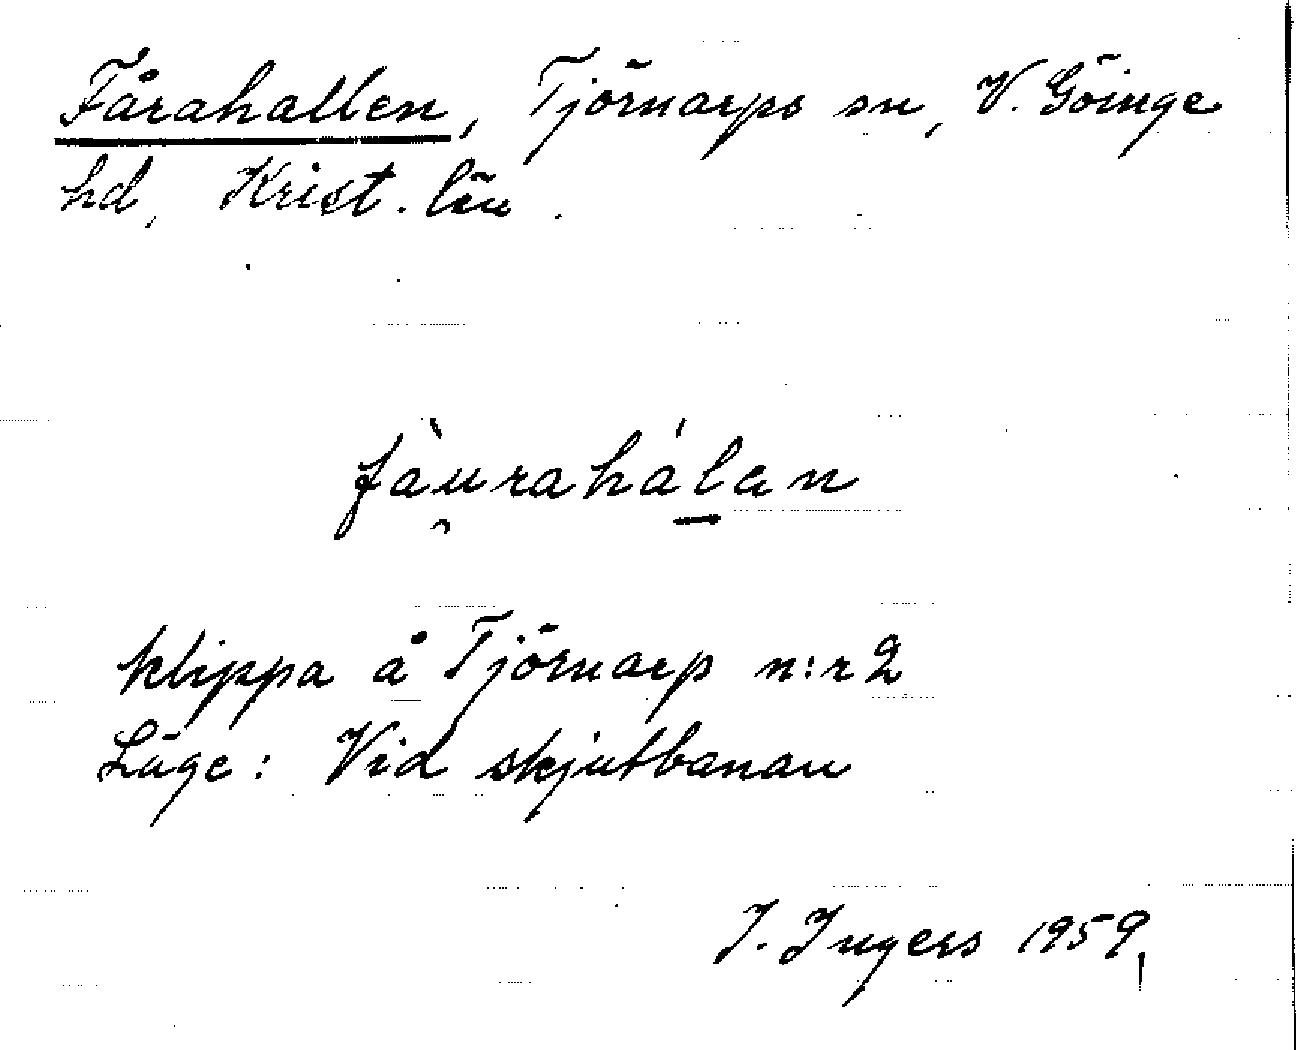 Fårahallen, Tjörnarps sn, V. Göinge
hd, Krist. län.
fàu̯rahál̠an
klippa å Tjörnarp n:r 2
Läge: Vid skjutbanan
I. Ingers 1959.